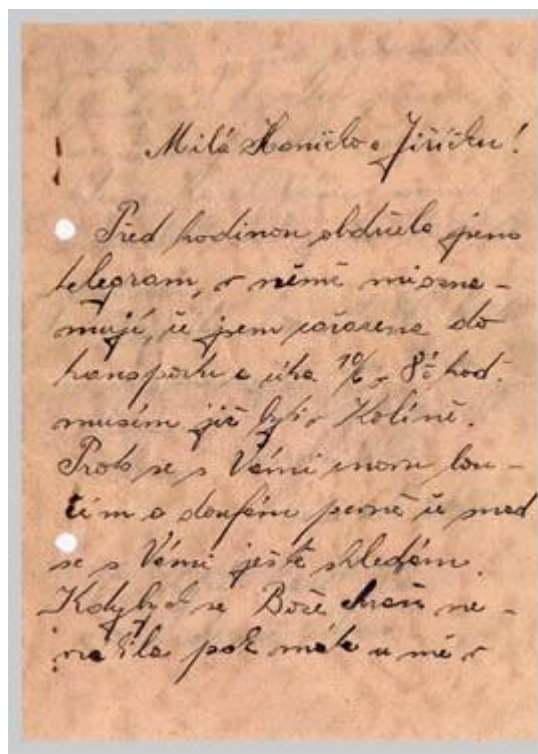 Milá Haničko a Jiříčku!
Před hodinou obdržela jsem
telegram, v němž mi ozna-
mují, že jsem zařazena do
transportu a 10/6 v 8 hod.
musím již býti v Kolíně.
Proto se s Vámi znovu lou-
čím a doufám pevně že snad
se s Vámi ještě shledám.
Kdybych se Bože chraň ne-
vrátila pak máte u mě v